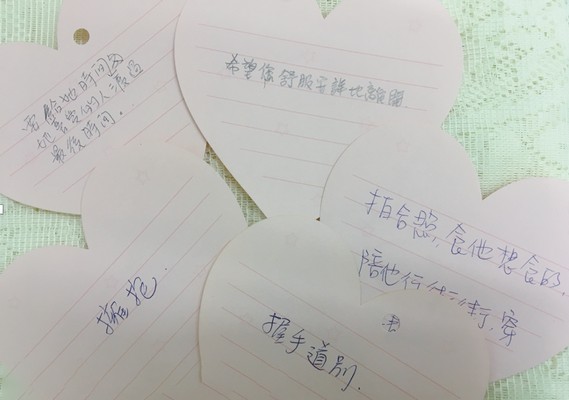 給她時間
她喜愛的人渡過
最後時間。
希望您舒服平靜地離開
拍合照,食他想食的,
陪他行街,穿
擁抱.
握手道別.